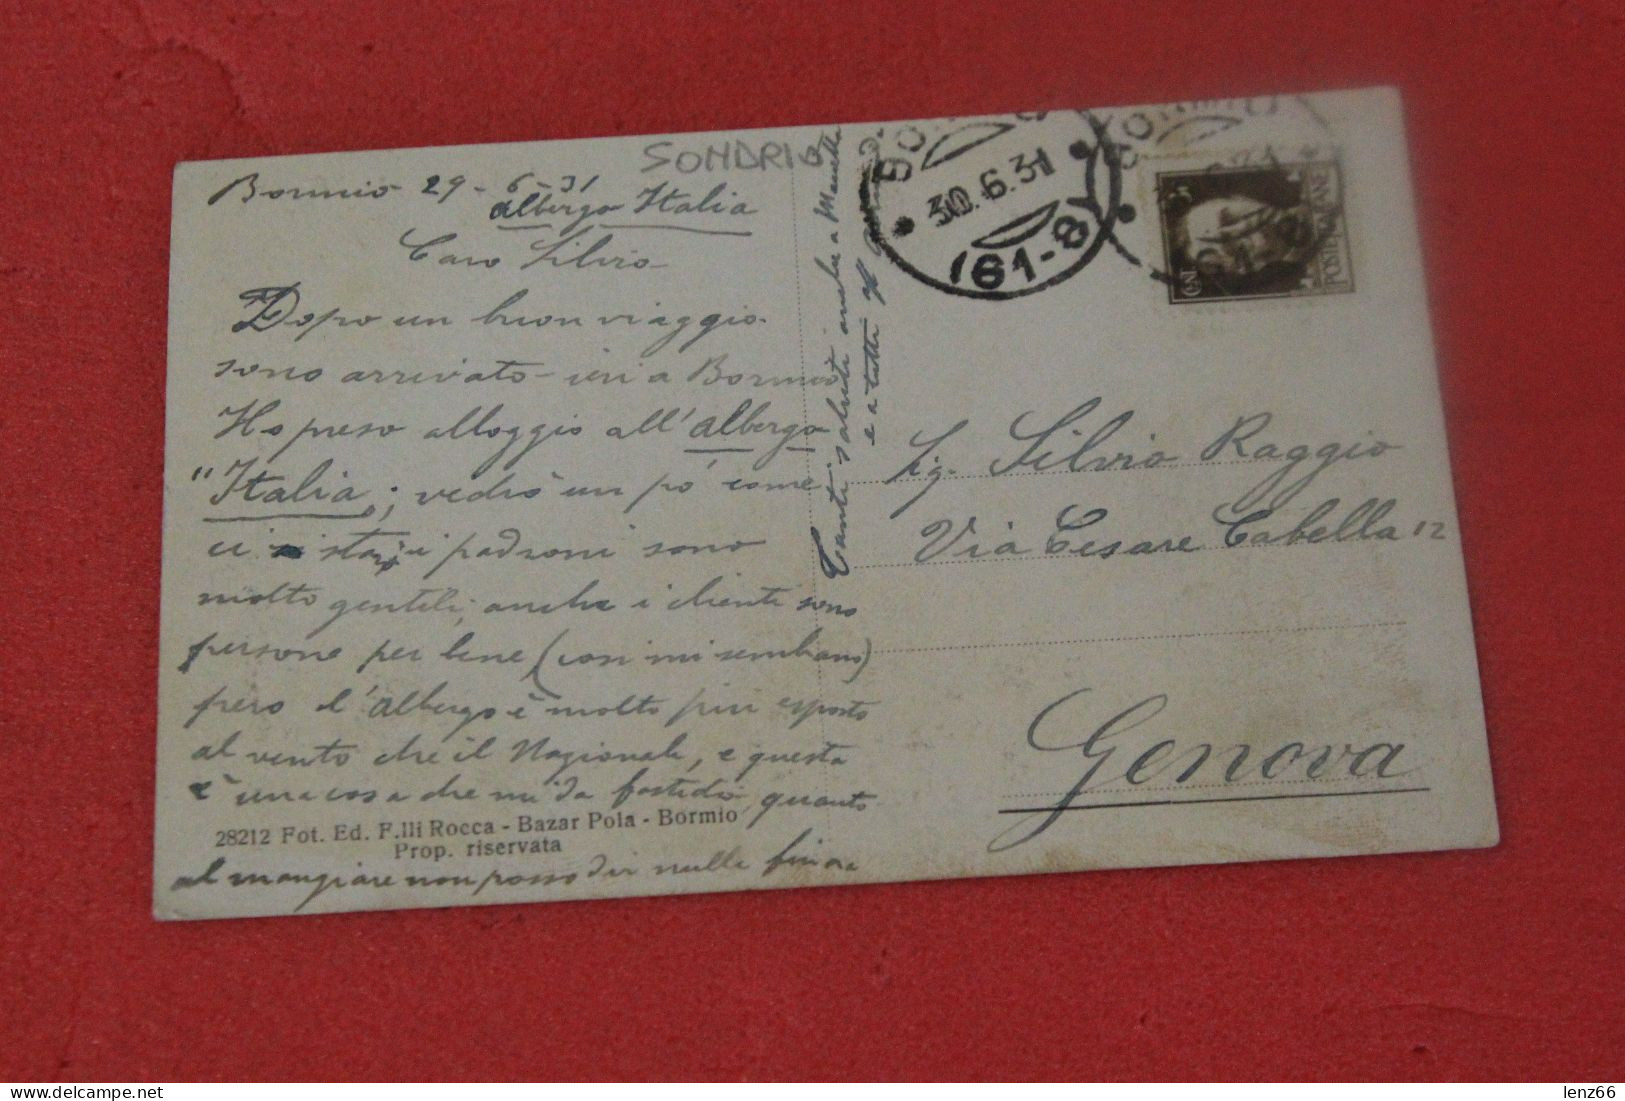 SONDRIO
Bormio 29-6-31
albergo Italia
Caro Silvio
Dopo un buon viaggio
sono arrivato ieri a Bormio
Ho preso alloggio all'albergo
"Italia; vedrò un pò come
ci si sta; i padroni sono
molto gentili, anche i clienti sono
persone per bene (così mi sembrano)
pero l'albergo è molto più esposto
al vento che il Nazionale, e questa
è una cosa che mi da fastidio, quanto
28212 Fot. Ed. F.lli Rocca - Bazar Pola - Bormio
Prop. riservata
al mangiare non posso dir nulla finora
Tanti saluti anche a
e a tutti
30.6.31
(61-8)
35
CENT
POSTE ITALIANE
Sig. Silvio Raggio
Via Cesare Cabella 12
Genova
lenz66